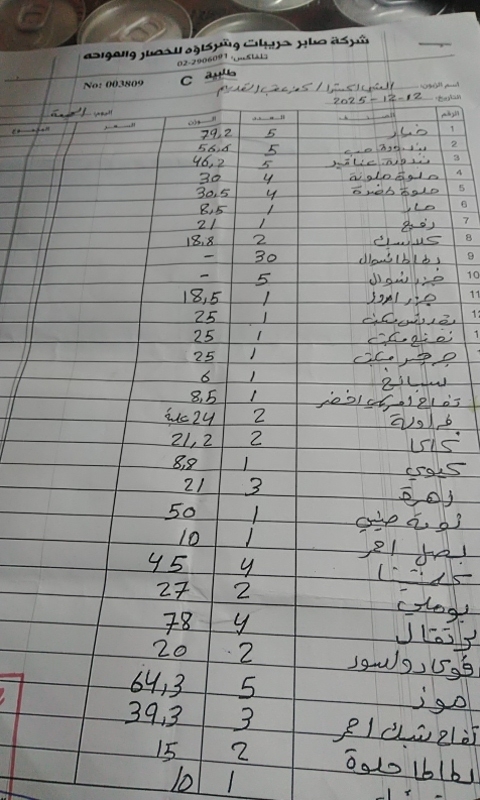 شركة صابر حريبات وشركاؤه للخضار والفواكه
تلفاكس: 02-2906091
طلبية C No: 003809
اسم الزبون:
التاريخ: 12-12-2025 اليوم: الجمعة
الرقم الصنف العدد الوزن السعر المجموع
1 خيار 5 79,2
2 بندورة حب 5 56,6
3 بندورة عناقيد 5 46,2
4 حلوة ملونة 4 30
5 حلوة خضرة 4 30,5
6 حار 1 8,5
7 رفيع 1 21
8 كلاسيك 2 18,8
9 بطاطا شوال 30 -
10 جزر شوال 5 -
11 جزر امروز 1 18,5
12 بقدونس مكتب 1 25
نعنع مكتب 1 25
جرجر مكتب 1 25
سبانخ 1 6
تفاح امريكي اخضر 1 8,5
فراولة 2 24 علبة
كاكا 2 21,2
كيوي 1 8,8
زهرة 3 21
لوبة صيني 1 50
بصل احمر 1 10
كلمنتينا 4 45
بوملي 2 27
برتقال 4 78
افوكادو لسور 2 20
موز 5 64,3
تفاح شبك احمر 3 39,3
بطاطا حلوة 2 15
1 10